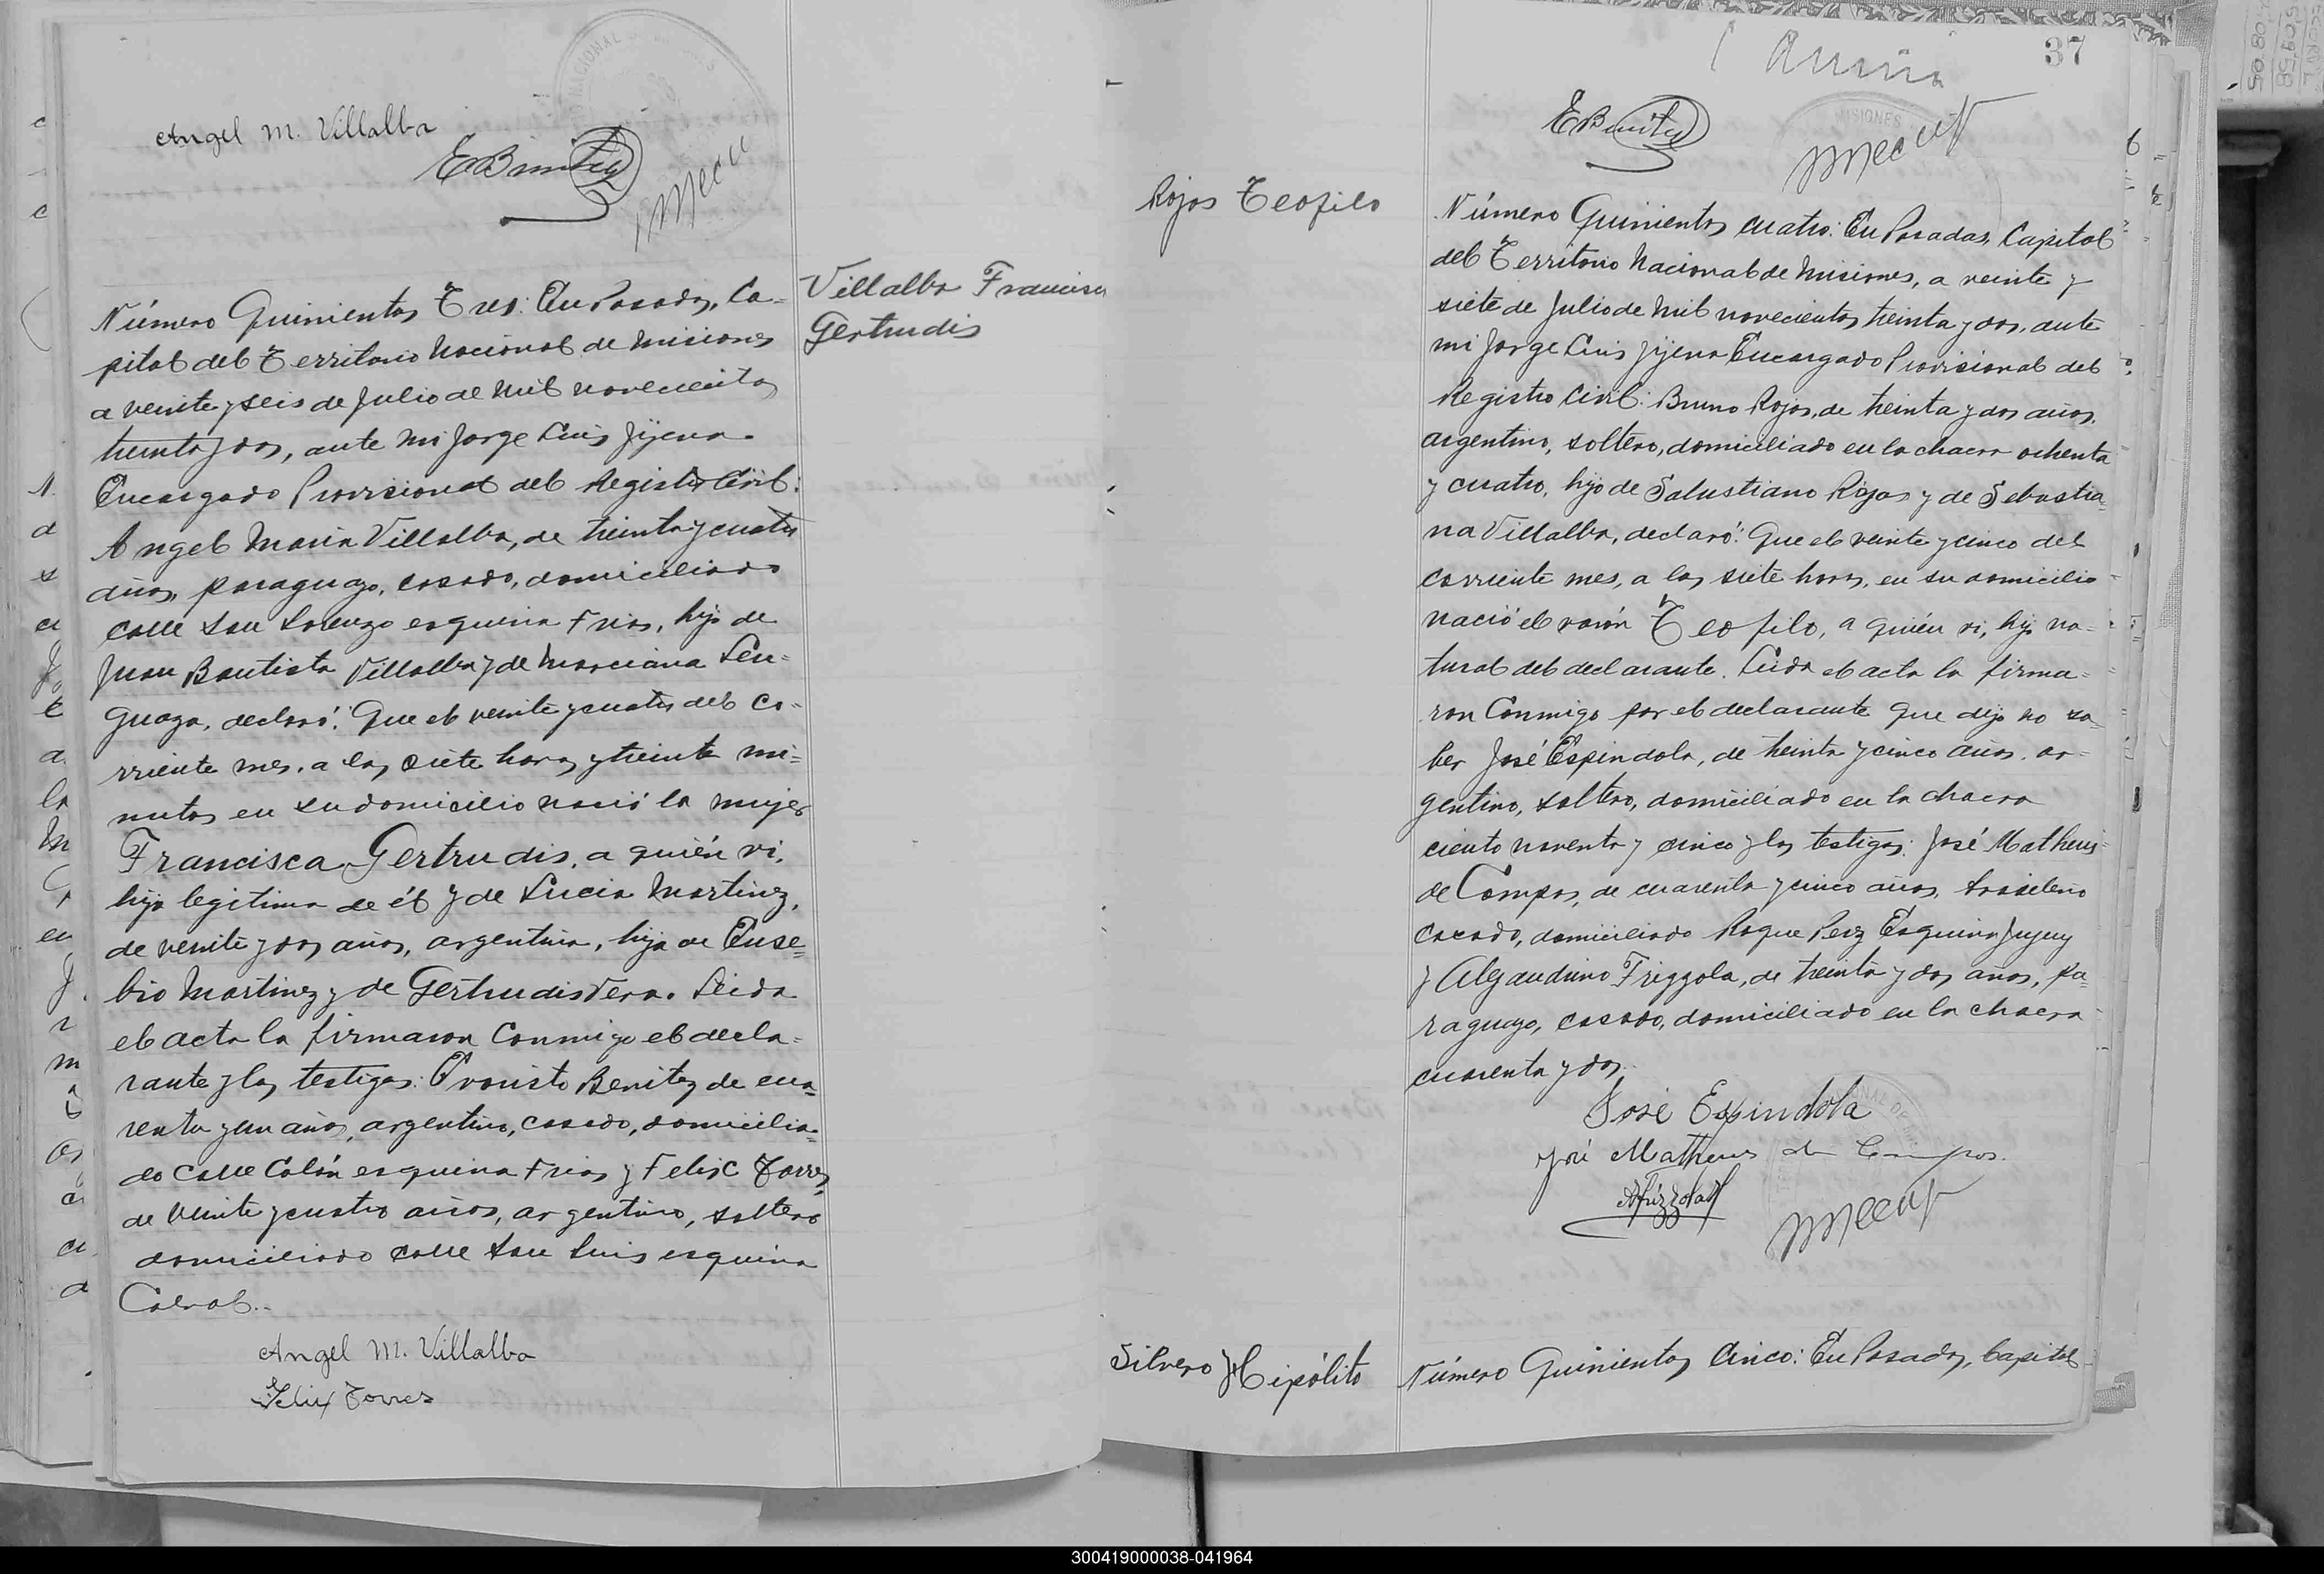 Angel M. Villalba
EBenitez
Villalba Francisca
Gertrudis
Número Quinientos Tres: En Posadas, Ca-
pital del Territorio Nacional de Misiones
a veinte y seis de Julio de mil novecientos
treinta y dos, ante mi Jorge Luis Jijena.
Encargado Provisional del Registro Civil:
Angel Maria Villalba, de treinta y cuatro
años, paraguayo, casado, domiciliado
calle San Lorenzo esquina Frias, hijo de
Juan Bautista Villalba y de Marciana Len=
guaza, declaró: Que el veinte y cuatro del co-
rriente mes, a las siete horas y treinta mi=
nutos en su domicilio nació la mujer
Francisca Gertrudis, a quién vi,
hija legitima de él y de Lucia Martinez,
de veinte y dos años, argentina, hija de Euse=
bio Martinez y de Gertrudis Vera. Leida
el acta la firmaron Conmigo el decla-
rante y los testigos: Evaristo Benitez de cua=
renta y un años, argentino, casado, domicilia=
do calle Colón esquina Frias y Felix Torres,
de veinte y cuatro años, argentino, soltero
domiciliado calle San Luis esquina
Cabral.-
Angel M. Villalba
Felix Torres
37
EBenitez
MISIONES
Rojas Teofilo
Número Quinientos cuatro: En Posadas, Capital
del Territorio Nacional de Misiones, a veinte y
siete de Julio de mil novecientos treinta y dos, ante
mi Jorge Luis Jijena Encargado Provisional del
Registro Civil: Bruno Rojas, de treinta y dos años,
argentino, soltero, domiciliado en la chacra ochenta
y cuatro, hijo de Salustiano Rojas y de Sebastia=
na Villalba, declaró: Que el veinte y cinco del
corriente mes, a las siete horas, en su domicilio
nació el varón Teofilo, a quién vi, hijo na-
tural del declarante. Leida el acta la firma=
ron Conmigo por el declarante que dijo no sa=
ber José Espindola, de treinta y cinco años, ar=
gentino, soltero, domiciliado en la chacra
ciento noventa y cinco y los testigos: José Matheus
de Campos, de cuarenta y cinco años, brasileño
casado, domiciliado Roque Perez Esquina Jujuy
y Alejandrino Frizzola, de treinta y dos años, pa=
raguayo, casado, domiciliado en la chacra
cuarenta y dos.
José Espindola
José Matheus de Campos.
AFrizzola
Silvero Hipólito
Número Quinientos Cinco: En Posadas, Capital
300419000038-041964